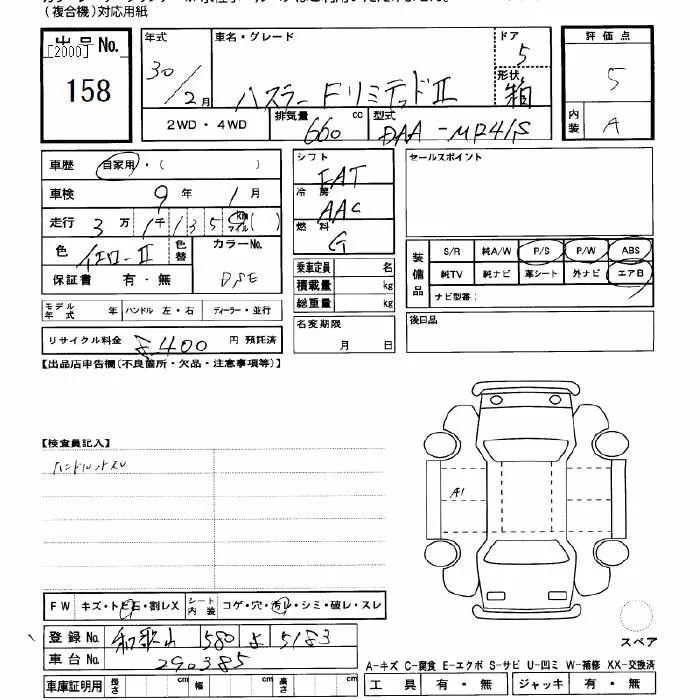 （複合機）対応用紙
出品No. [2000] 158
年式 30/2月
車名・グレード ハスラー FリミテッドII
ドア 5
形状 箱
評価点 5
内装 A
2WD・4WD
排気量 660 cc
型式 DAA-MR41S
車歴 自家用・( )
車検 9年 1月
走行 3万 1千 1 3 5 km マイル ( )
色 イエローII
色替
カラーNo. DSE
保証書 有・無
モデル年式 年
ハンドル 左・右
ディーラー・並行
リサイクル料金 6400 円 預託済
シフト FAT
冷房 AAC
燃料 G
乗車定員 名
積載量 kg
総重量 kg
名変期限 月 日
セールスポイント
装備品
S/R 純A/W P/S P/W ABS
純TV 純ナビ 革シート 外ナビ エアB
ナビ型番：
後日品
【出品店申告欄(不良箇所・欠品・注意事項等)】
【検査員記入】
ハンドルスレ
A1
FW キズ・トビ石・割レX
シート内装 コゲ・穴・汚レ・シミ・破レ・スレ
登録No. 和歌山 580 よ 5183
車台No. 290385
車庫証明用 長さ cm 幅 cm 高さ cm
スペア
A-キズ C-腐食 E-エクボ S-サビ U-凹ミ W-補修 XX-交換済
工具 有・無 ジャッキ 有・無